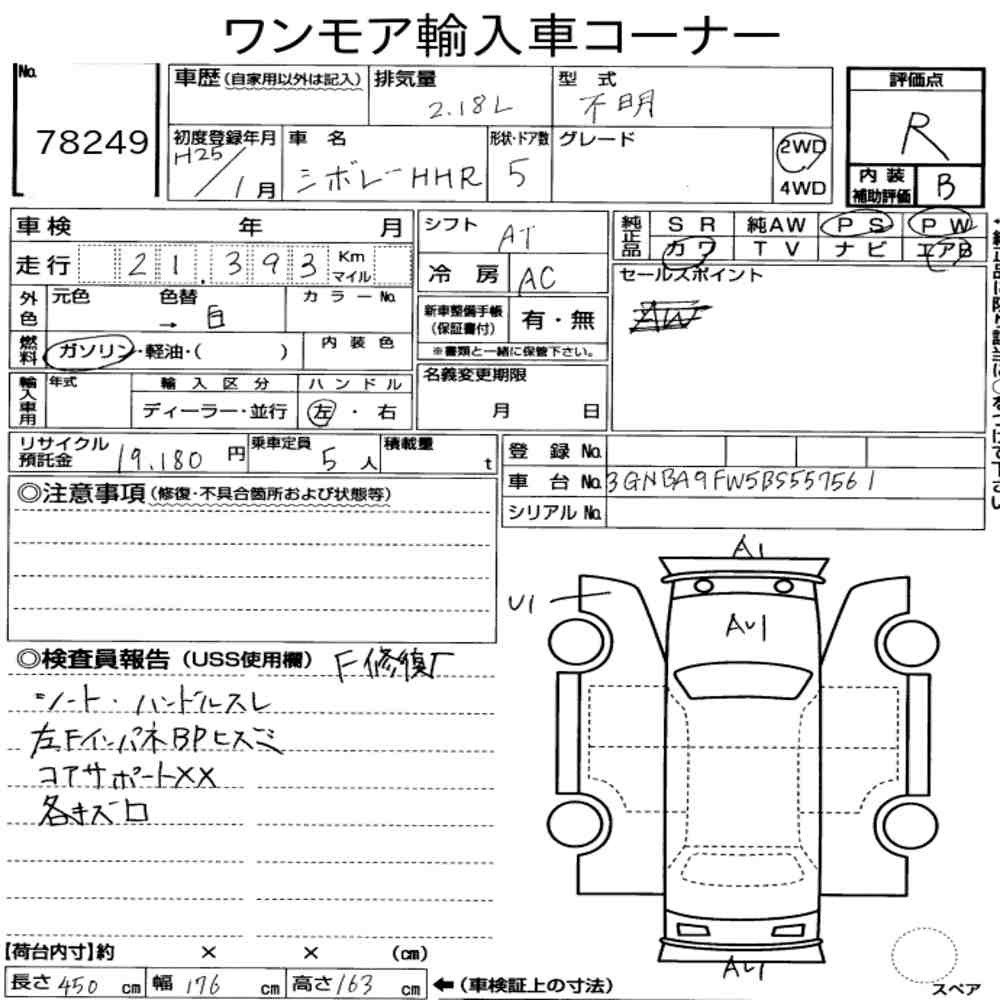 ワンモア輸入車コーナー
No. 78249
車歴(自家用以外は記入) 排気量 2.18L 型式 不明
評価点 R
初度登録年月 H25/1月 車名 シボレーHHR 形状・ドア数 5 グレード 2WD 4WD
内装補助評価 B
車検 年 月 シフト AT
純正品 SR 純AW PS PW
カワ TV ナビ エアB
走行 21,393 Km マイル 冷房 AC
セールスポイント
AW
外色 元色 色替 → 白 カラーNo.
新車整備手帳(保証書付) 有・無
※書類と一緒に保管下さい。
燃料 ガソリン・軽油・( ) 内装色
輸入車用 年式 輸入区分 ハンドル
ディーラー・並行 左・右
名義変更期限
月 日
リサイクル預託金 19.180円 乗車定員 5人 積載量 t
登録No.
車台No. 3GNBA9FW5BS557561
シリアルNo.
◎注意事項(修復・不具合箇所および状態等)
A1
U1
AU1
◎検査員報告(USS使用欄) F修復歴
シート・ハンドルスレ
左FインパネBPヒズミ
コアサポートXX
各キズロ
【荷台内寸】約 × × (cm)
AU1
長さ 450 cm 幅 176 cm 高さ 163 cm ←(車検証上の寸法)
スペア